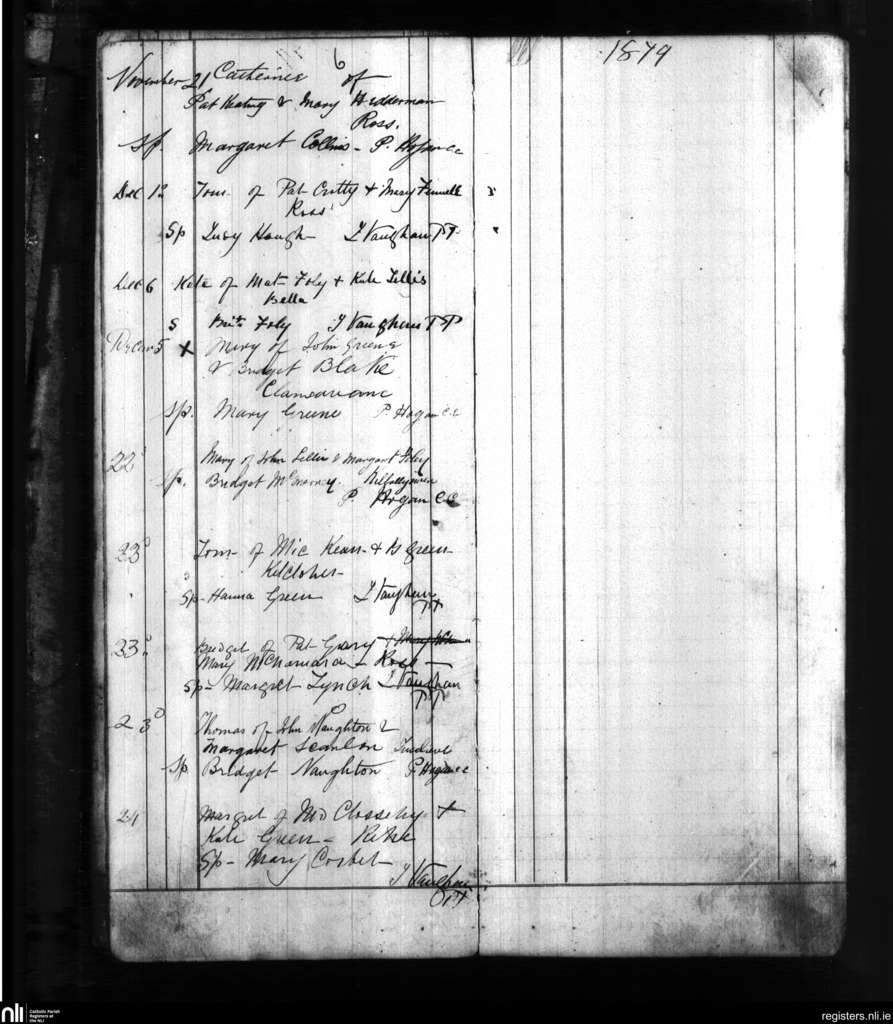 1879
November 21 Catherine of
Pat Keating & Mary Hedderman
Ross.
Sp. Margaret Collins - P. Hogan CC
Dec 12 Tom of Pat Crotty & Mary Funnell
Ross
Sp Susy Haugh - J Vaughan PP
Dec 6 Kate of Mat Foley + Kate Lillis
Bella
S Foley J Vaughan PP
5 x Mary of John Greene
& Bridget Blake
Sp. Mary Greene P. Hogan CC
22 Mary of John Lillis & Margaret Foley
Sp. Bridget
P. Hogan CC
23 Tom of Mic Kean + B Green
Kilcloher
Sp - Hanna Green J Vaughan
PP
23 Bridget of Pat Geary +
Mary McNamara - Ross
Sp - Margret Lynch J Vaughan
PP
23 Thomas of John Naughton &
Margaret Scanlan
Sp Bridget Naughton P. Hogan CC
24 Margret of +
Kate Green -
Sp - Mary Corbet -
J Vaughan
PP
nli
Catholic Parish
Registers at
the NLI
registers.nli.ie